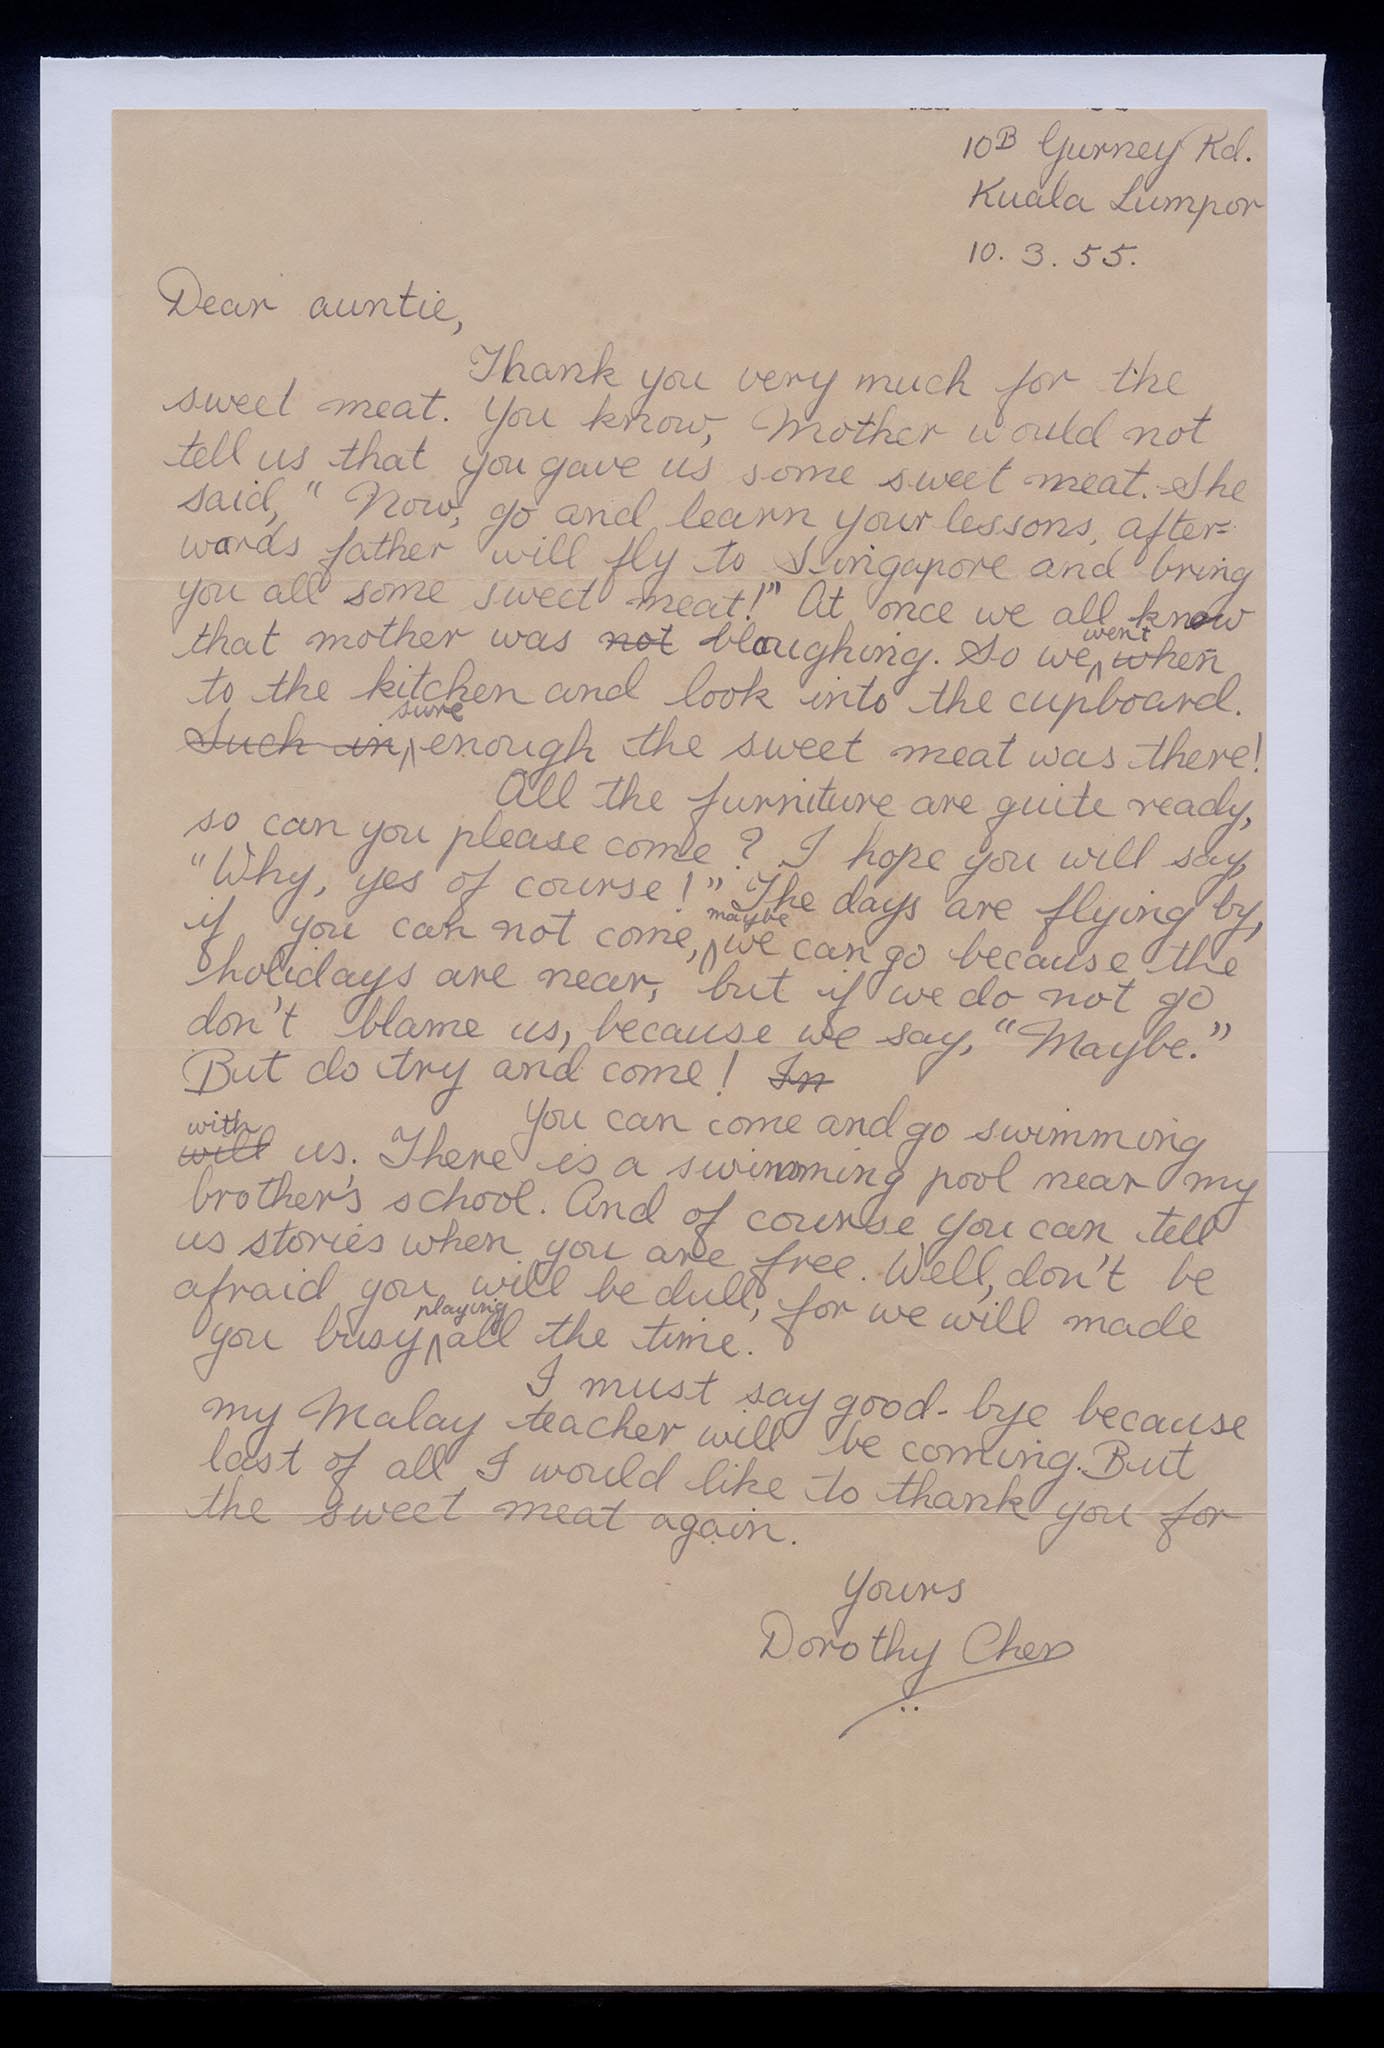 10B Gurney Rd.
Kuala Lumpor
10. 3. 55.
Dear auntie,
Thank you very much for the
sweet meat. You know, Mother would not
tell us that you gave us some sweet meat. She
said, " Now, go and learn your lessons, after=
words father will fly to Singapore and bring
you all some sweet meat!" At once we all know
that mother was not blaughing. So we went when
to the kitchen and look into the cupboard.
Such in sure enough the sweet meat was there!
All the furniture are quite ready,
so can you please come? I hope you will say,
"Why, yes of course!" The days are flying by,
if you can not come, maybe we can go because the
holidays are near, but if we do not go
don't blame us, because we say, "Maybe."
But do try and come! In
You can come and go swimming
with will us. There is a swimming pool near my
brother's school. And of course you can tell
us stories when you are free. Well, don't be
afraid you will be dull, for we will made
you busy playing all the time.
I must say good-bye because
my Malay teacher will be coming. But
last of all I would like to thank you for
the sweet meat again.
Yours
Dorothy Chen